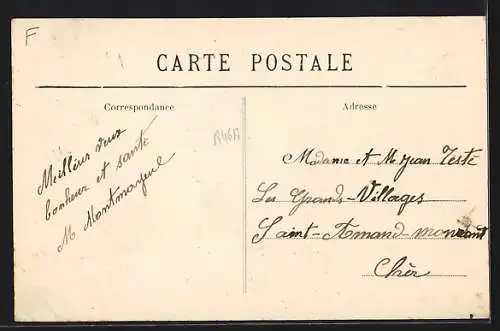 F
CARTE POSTALE
Correspondance
Adresse
Meilleur vœux
bonheur et santé
M Montmayeul
R46A
Madame et Mr Jean Teste
Les Grands-Villages
Saint-Amand-montrant
Cher